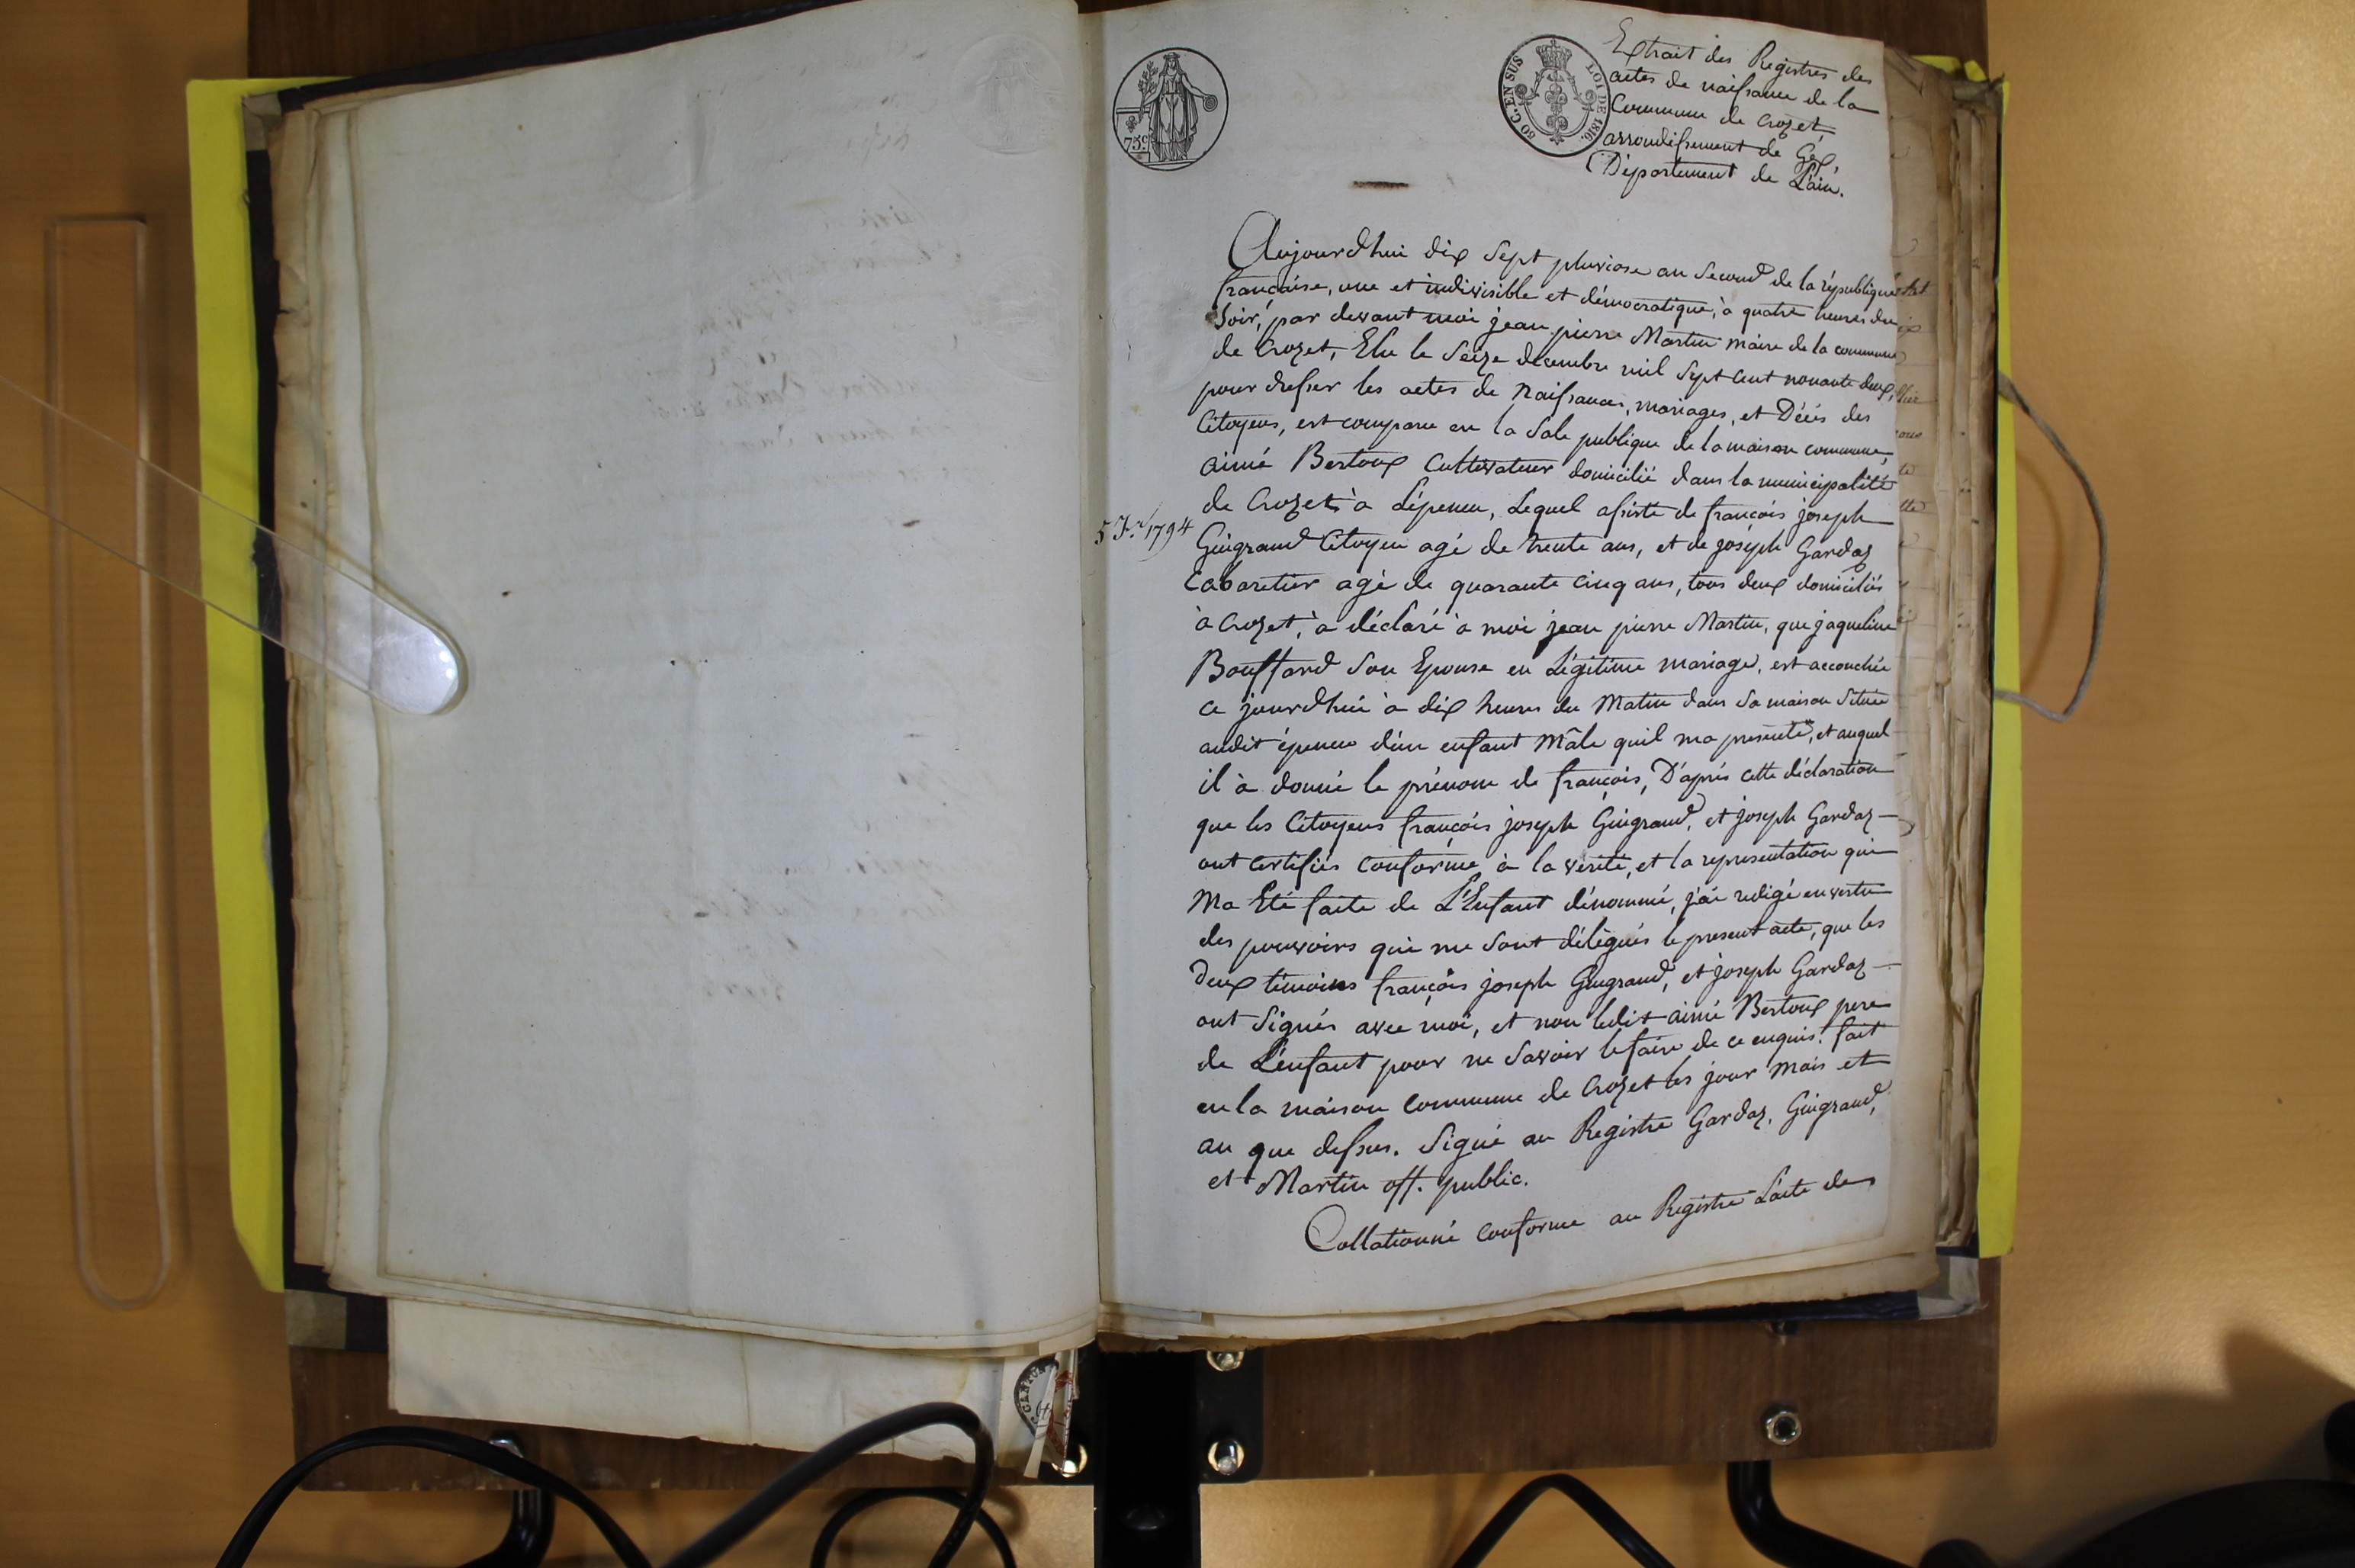 75c
50 C. EN SUS
LOI DE 1816.
Extrait des Registres des
actes de naissance de la
Commune de Crozet,
arrondissement de Gex,
Département de L'ain.
Aujourdhui dix Sept pluviose an Second de la république
française, une et indivisible et démocratique, à quatre heures du
Soir, par devant moi jean pierre Martin maire de la commune
de Crozet, Elu le Seize decembre mil Sept Cent nonante deux,
pour dresser les actes de Naissances, mariages, et Décès des
Citoyens, est comparu en la Sale publique de la maison commune,
aimé Bertoux Cultivateur domicilié dans la municipalité
de Crozet à Lépeneu, Lequel assisté de françois joseph
5 Fr. 1794
Guigraud Citoyen agé de trente ans, et de joseph Gardaz
Cabaretier agé de quarante cinq ans, tous deux domiciliés
à Crozet, a déclaré à moi jean pierre Martin, que jaqueline
Bouffard Son Epouse en Légitime mariage, est accouchée
ce jourdhui à dix heures du Matin dans Sa maison Située
audit épeneu d'un enfant Mâle quil ma presenté, et auquel
il à donné le prénom de françois, D'après cette déclaration
que les Citoyens françois joseph Guigraud, et joseph Gardaz
ont certifiés conforme à la vérité, et la representation qui
Ma Eté faite de L'Enfant dénommé, j'ai redigé en vertu
des pouvoirs qui me sont délégués le present acte, que les
Deux témoins françois joseph Guigraud, et joseph Gardaz
ont Signés avec moi, et non ledit aimé Bertoux pere
de L'enfant pour ne Savoir le faire de ce enquis. fait
en la maison Commune de Crozet les jour Mois et
an que dessus. Signé au Registre Gardaz, Guigraud,
et Martin off. public.
Collationné conforme au Registre L'acte de